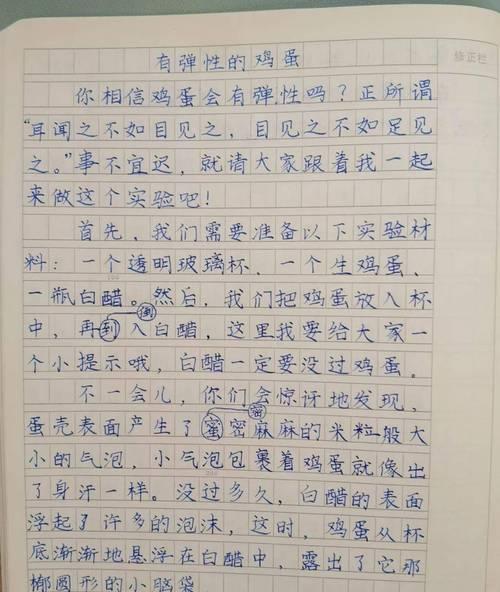 有弹性的鸡蛋
修正栏
你相信鸡蛋会有弹性吗？正所谓
“耳闻之不如目见之，目见之不如足见
之。”事不宜迟，就请大家跟着我一起
来做这个实验吧！
首先，我们需要准备以下实验材
料：一个透明玻璃杯、一个生鸡蛋、
一瓶白醋。然后，我们把鸡蛋放入杯
倒
中，再到入白醋，这里我要给大家一
个小提示哦，白醋一定要没过鸡蛋。
不一会儿，你们会惊讶地发现，
密
蛋壳表面产生了蜜密麻麻的米粒般大
小的气泡，小气泡包裹着鸡蛋就像出
了身汗一样。没过多久，白醋的表面
浮起了许多的泡沫，这时，鸡蛋从杯
底渐渐地悬浮在白醋中，露出了它那
椭圆形的小脑袋